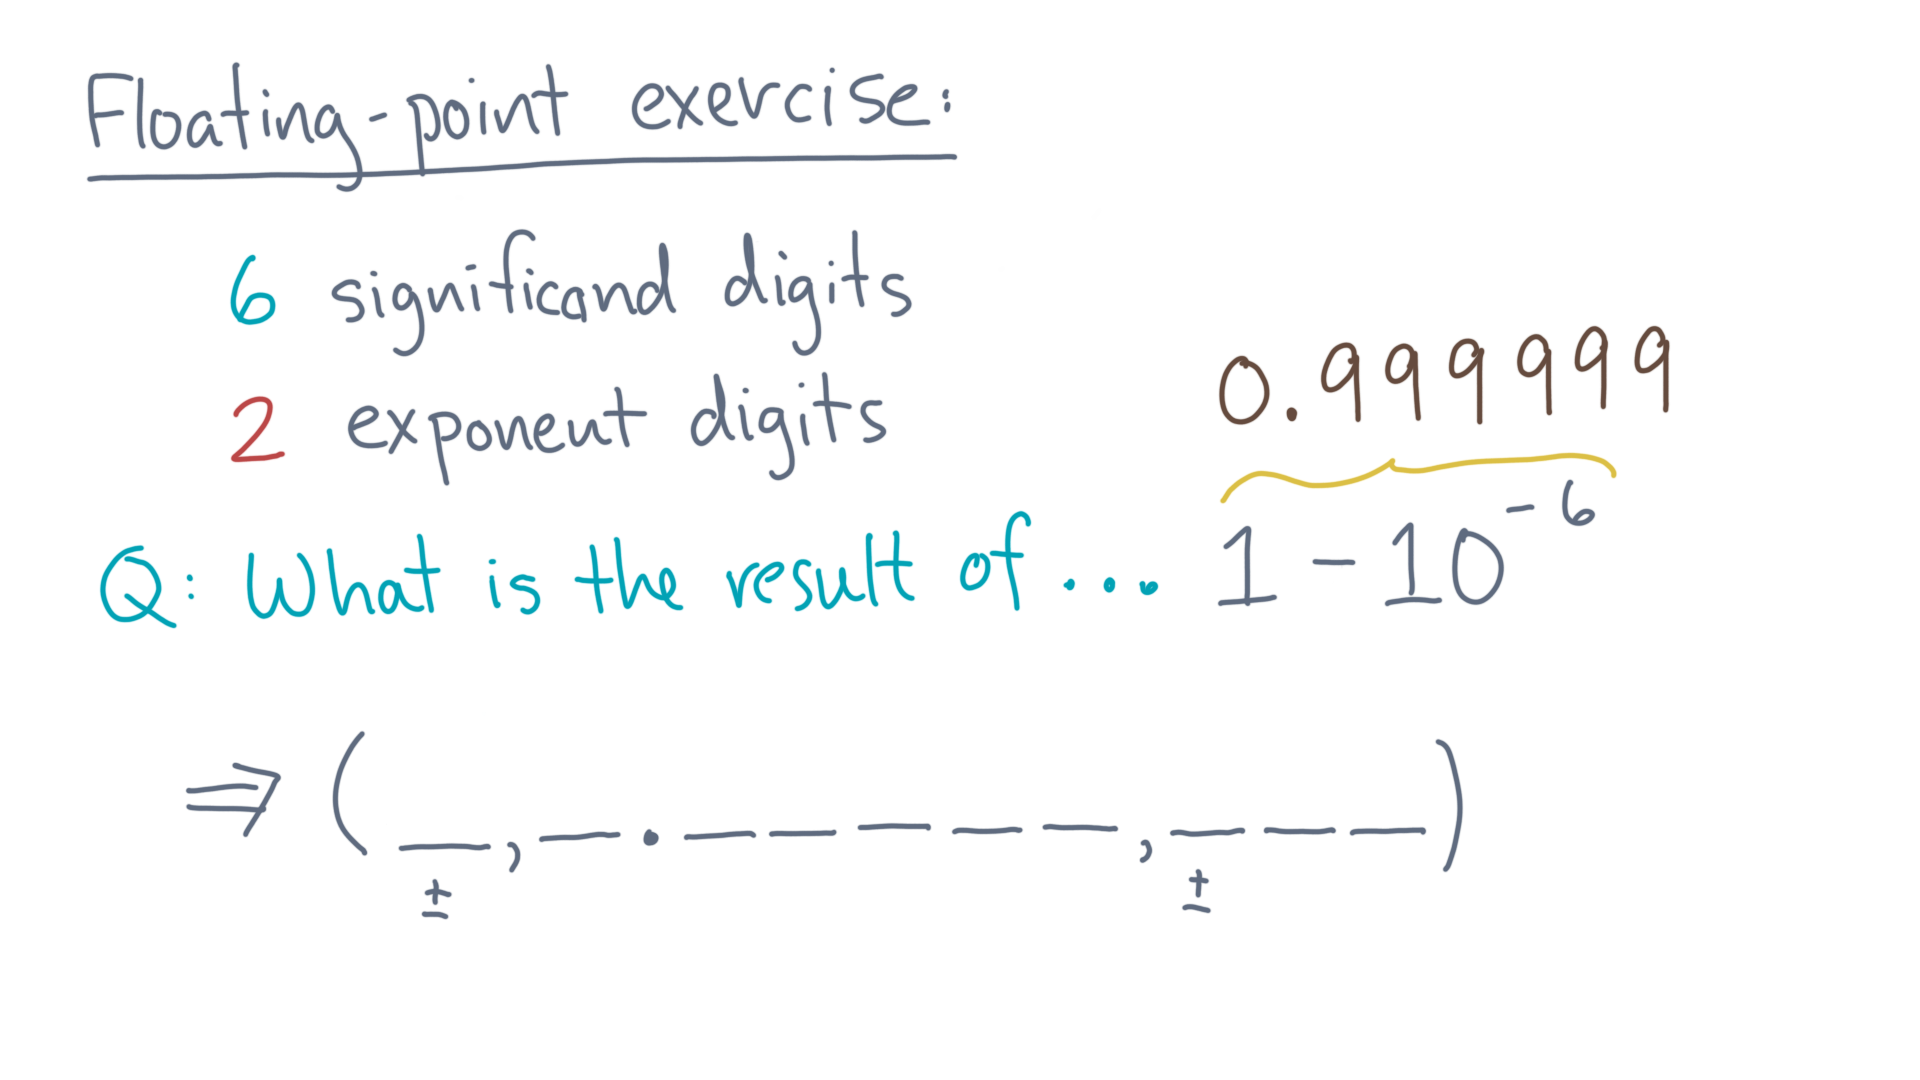 Floating-point exercise:
6 significand digits
2 exponent digits
0.999999
Q: What is the result of ... 1 - 10^-6
⇒ ( __, __ . __ __ __ __ __, __ __ __ )
± ±